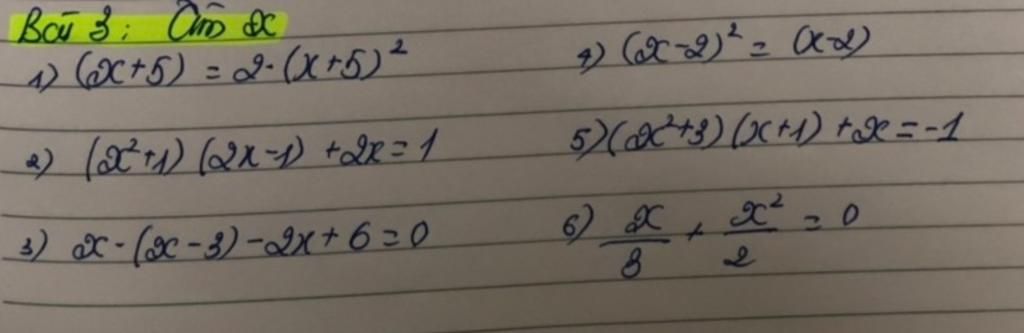 Bài 3: Tìm x
1) (x+5) = 2·(x+5)²
4) (x-2)² = (x-2)
2) (x²+1)(2x-1) + 2x = 1
5) (x²+3)(x+1) + x = -1
3) x·(x-3) - 2x + 6 = 0
6) x/3 + x²/2 = 0